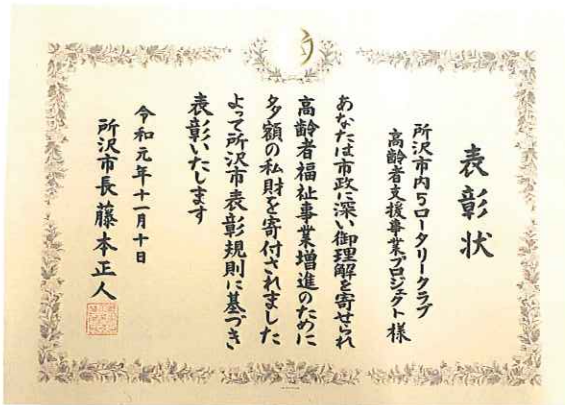 表彰状
所沢市内5ロータリークラブ
高齢者支援事業プロジェクト様
あなたは市政に深い御理解を寄せられ
高齢者福祉事業増進のために
多額の私財を寄付されました
よって所沢市表彰規則に基づき
表彰いたします
令和元年十一月十日
所沢市長藤本正人